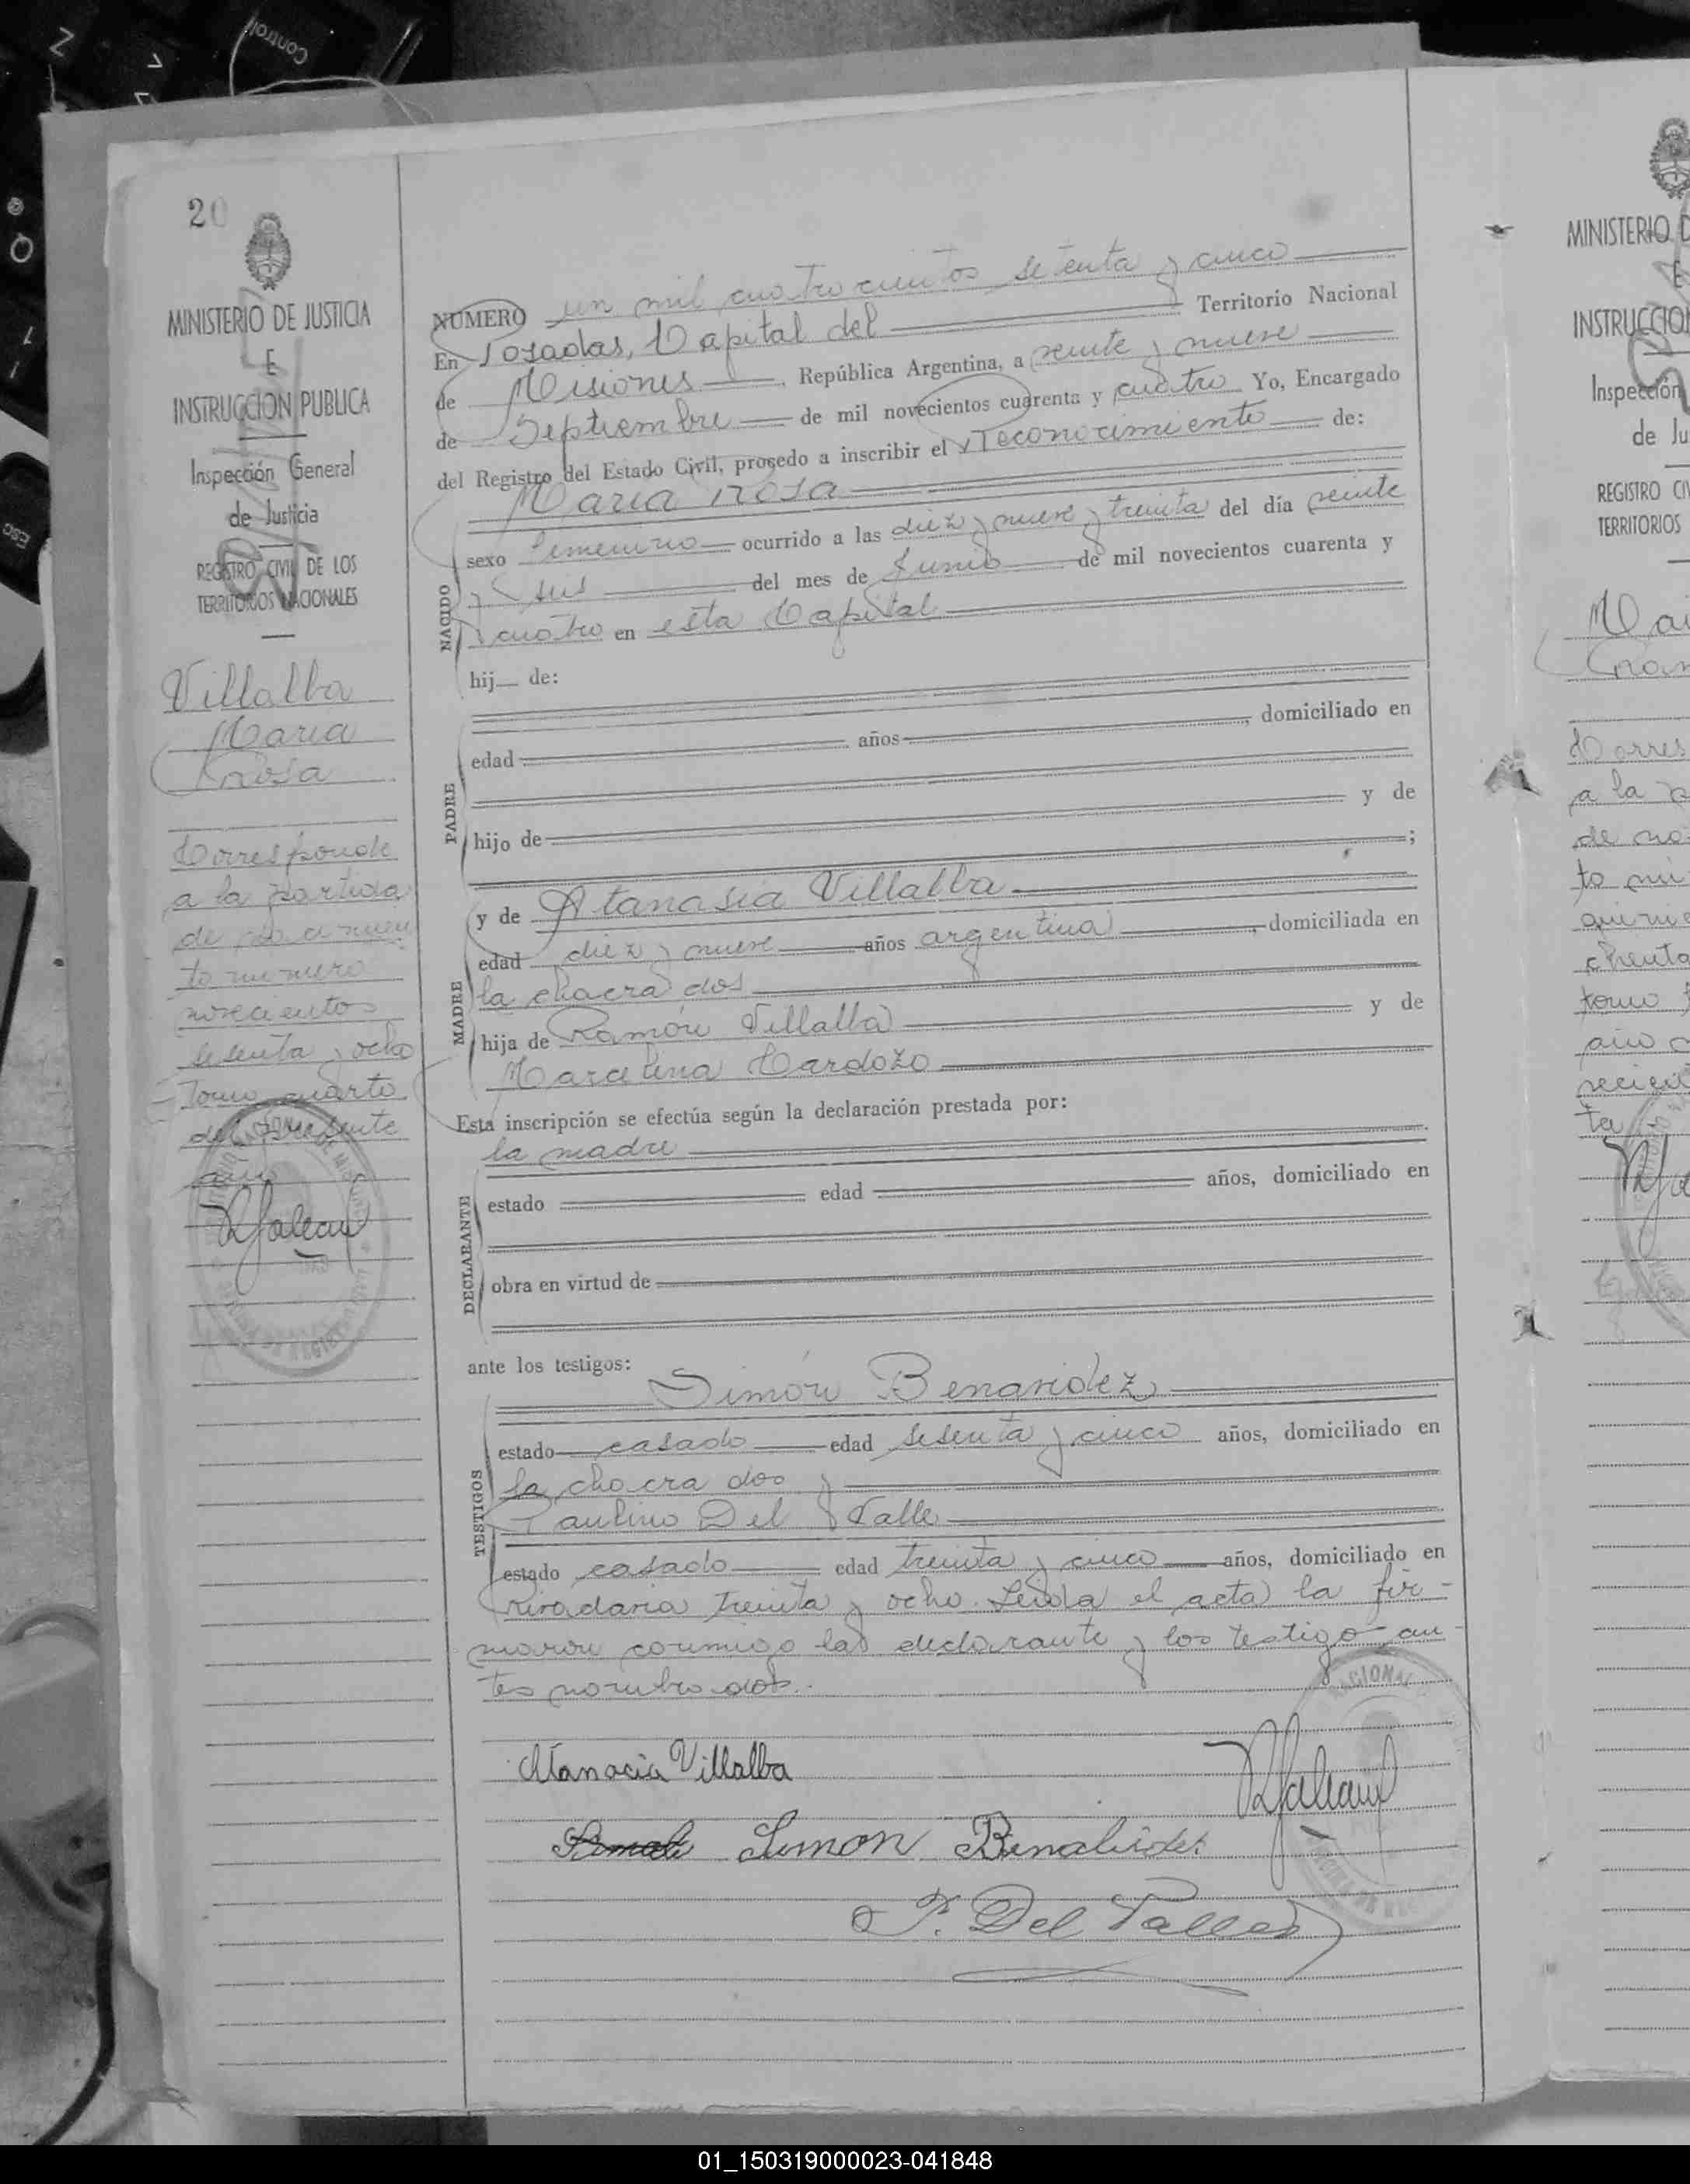 Control
Z
Esc
20
MINISTERIO DE JUSTICIA
E
INSTRUCCION PUBLICA
Inspección General
de Justicia
REGISTRO CIVIL DE LOS
TERRITORIOS NACIONALES
Villalba
Maria
Rosa
Corresponde
a la partida
de nacimien
to numero
novecientos
sesenta y ocho
Tomo cuarto
del presente
año
NUMERO un mil cuatrocientos setenta y cinco
En Posadas, Capital del Territorio Nacional
de Misiones, República Argentina, a veinte y nueve
de Septiembre de mil novecientos cuarenta y cuatro Yo, Encargado
del Registro del Estado Civil, procedo a inscribir el reconocimiento de:
Maria Rosa
NACIDO
sexo femenino ocurrido a las diez y nueve y treinta del día veinte
y seis del mes de Junio de mil novecientos cuarenta y
cuatro en esta Capital
hij de:
PADRE
edad años , domiciliado en
hijo de y de
;
MADRE
y de Atanasia Villalba
edad diez y nueve años argentina, domiciliada en
la chacra dos
hija de Ramón Villalba y de
Marcelina Cardozo
Esta inscripción se efectúa según la declaración prestada por:
la madre
DECLARANTE
estado edad años, domiciliado en
obra en virtud de
ante los testigos:
Simón Benavidez
TESTIGOS
estado casado edad sesenta y cinco años, domiciliado en
la chacra dos y
Paulino Del Valle
estado casado edad treinta y cinco años, domiciliado en
Rivadavia treinta y ocho. Leida el acta la fir-
maron conmigo la declarante y los testigo an-
tes nombrados.
Atanacia Villalba
Simon Benabidez
P. Del Valle
MINISTERIO D
E
INSTRUCCION
Inspección
de Ju
REGISTRO CIV
TERRITORIOS
Corres
a la p
de na
to
tomo
año
ta
01_150319000023-041848